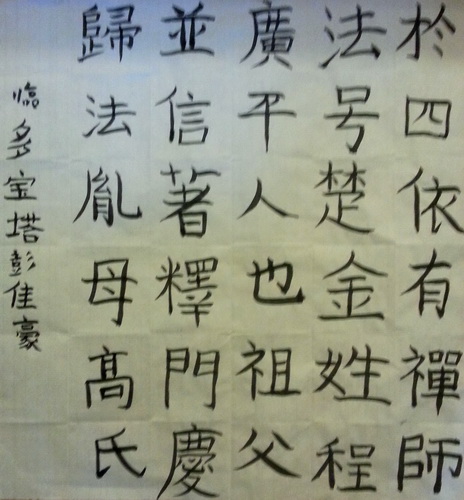 於四依有禪師
法号楚金姓程
廣平人也祖父
並信著釋門慶
歸法胤母高氏
臨多宝塔彭佳豪